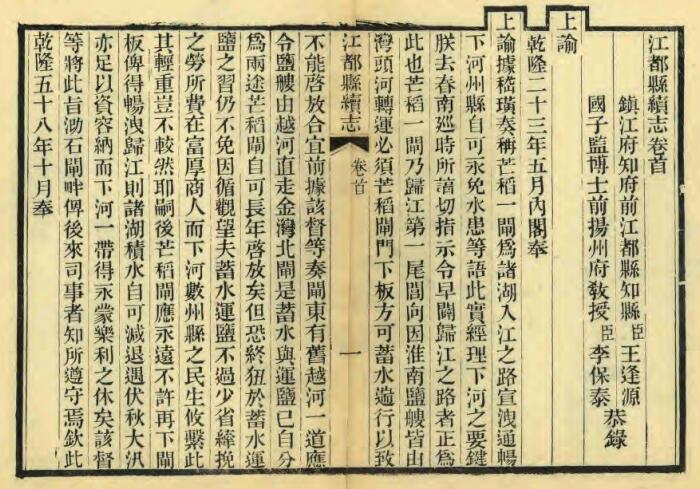 江都縣續志卷首
鎮江府知府前江都縣知縣臣王逢源
國子監博士前揚州府敎授臣李保泰恭錄
上諭
乾隆二十三年五月內閣奉
上諭據嵇璜奏稱芒稻一閘爲諸湖入江之路宣洩通暢
下河州縣自可永免水患等語此實經理下河之要鍵
朕去春南巡時所諭切指示令早闢歸江之路者正爲
此也芒稻一閘乃歸江第一尾閭向因淮南鹽艘皆由
灣頭河轉運必須芒稻閘門下板方可蓄水遄行以致
江都縣續志
卷首
一
不能啓放合宜前據該督等奏閘東有舊越河一道應
令鹽艘由越河直走金灣北閘是蓄水與運鹽已自分
爲兩途芒稻閘自可長年啓放矣但恐終狃於蓄水運
鹽之習仍不免因循觀望夫蓄水運鹽不過少省縴挽
之勞所費在富厚商人而下河數州縣之民生攸繫此
其輕重豈不較然耶嗣後芒稻閘應永遠不許再下閘
板俾得暢洩歸江則諸湖積水自可減退遇伏秋大汛
亦足以資容納而下河一帶得永蒙樂利之休矣該督
等將此旨泐石閘畔俾後來司事者知所遵守焉欽此
乾隆五十八年十月奉